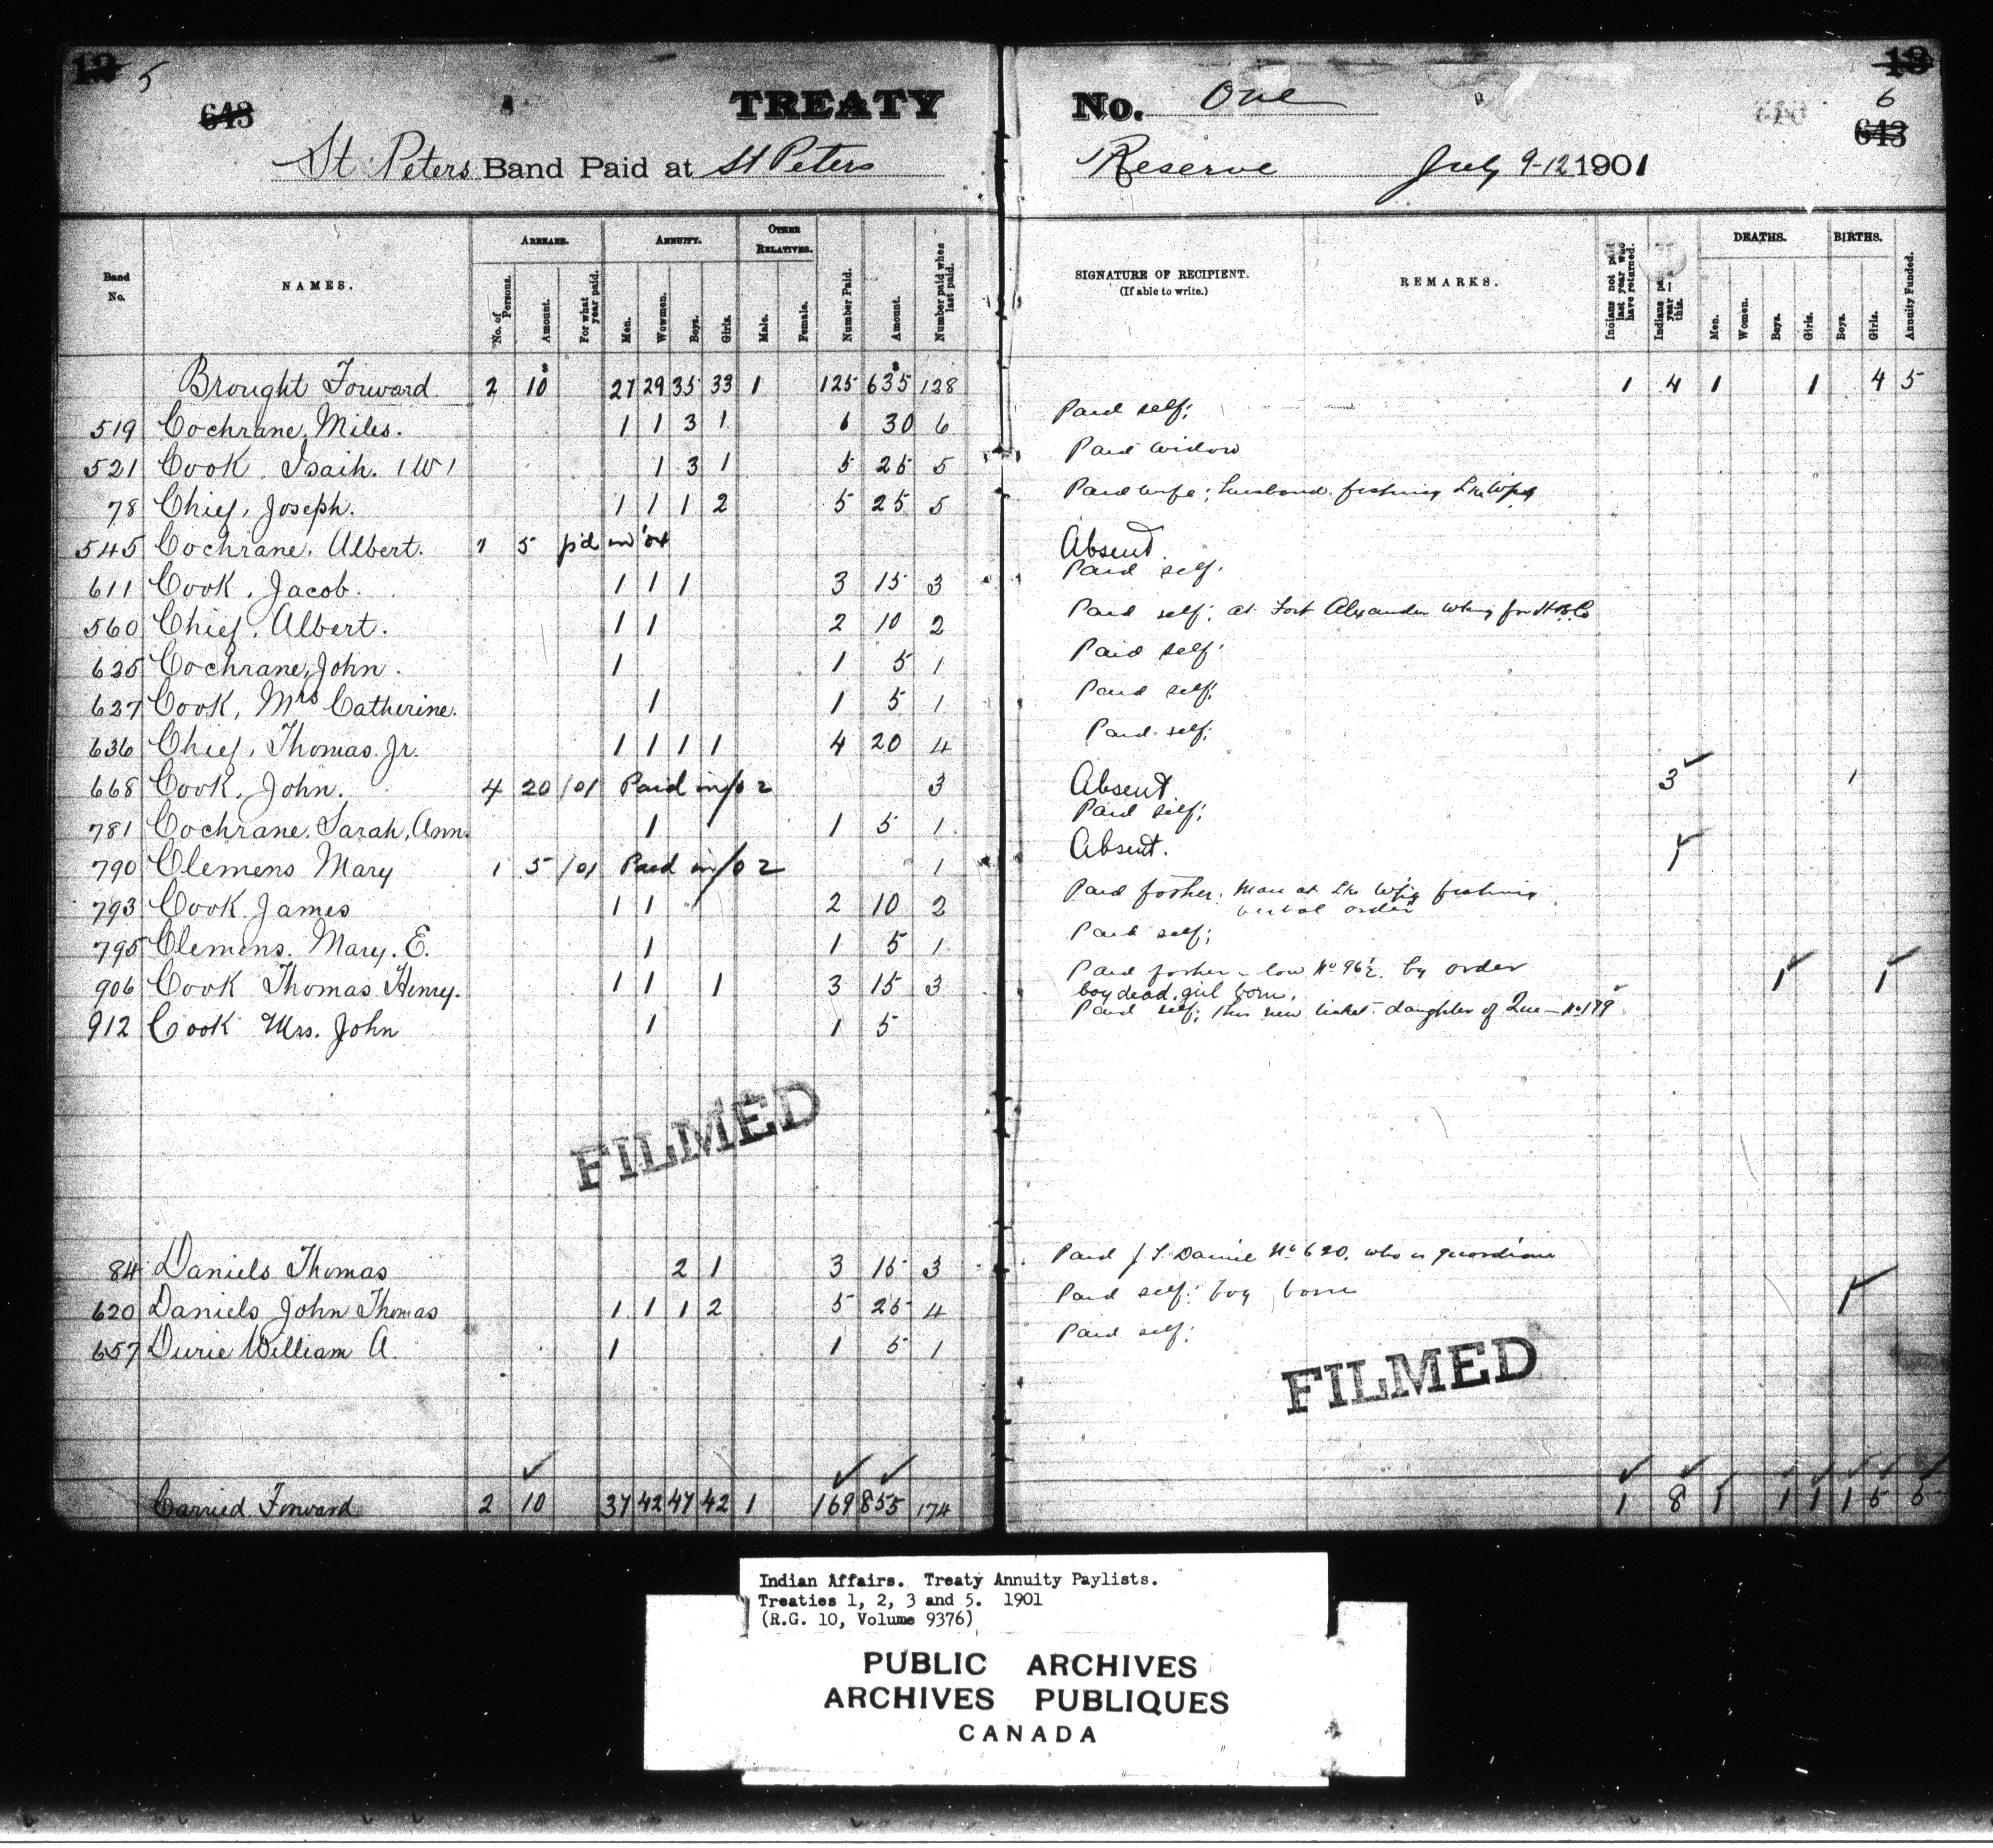 12 5 TREATY No. One 13
643 6 643
St Peters Band Paid at St Peters Reserve July 9-12 1901
Band No. NAMES. ARREARS. No. of Persons. Amount. For what year paid. ANNUITY. Men. Wowmen. Boys. Girls. OTHER RELATIVES. Male. Female. Number Paid. Amount. Number paid when last paid. SIGNATURE OF RECIPIENT. (If able to write.) REMARKS. Indians not paid last year who have returned. Indians year this. DEATHS. Men. Women. Boys. Girls. BIRTHS. Boys. Girls. Annuity Funded.
Brought Forward 2 10 27 29 35 33 1 125 635 128 1 4 1 1 4 5
519 Cochrane, Miles. 1 1 3 1 6 30 6 Paid self;
521 Cook, Isaih. (W) 1 3 1 5 25 5 Paid widow
78 Chief, Joseph. 1 1 1 2 5 25 5 Paid wife; husband fishing Lke Wpg
545 Cochrane, Albert. 1 5 p'd in Absent.
611 Cook, Jacob. 1 1 1 3 15 3 Paid self;
560 Chief, Albert. 1 1 2 10 2 Paid self; at Fort Alexander wking for H.B.C
625 Cochrane, John. 1 1 5 1 Paid self;
627 Cook, Mrs Catherine. 1 1 5 1 Paid self;
636 Chief, Thomas Jr. 1 1 1 1 4 20 4 Paid self;
668 Cook, John. 4 20 /01 Paid in/02 3 Absent 3 1
781 Cochrane, Sarah, Ann. 1 1 5 1 Paid self;
790 Clemens Mary 1 5 /01 Paid in/02 1 Absent. 1
793 Cook James 1 1 2 10 2 Paid father. Man at Lke Wpg fishing
verbal order
795 Clemens. Mary. E. 1 1 5 1 Paid self;
906 Cook Thomas Henry. 1 1 1 3 15 3 Paid by order 1 1
boy dead, girl born.
912 Cook Mrs. John 1 1 5 Paid self; this new ticket - daughter of No 179
FILMED
84 Daniels Thomas 2 1 3 15 3 Paid J T. Daniel No 620. who is guardian
620 Daniels John Thomas 1 1 1 2 5 25 4 Paid self; boy born 1
657 Durie William A. 1 1 5 1 Paid self;
FILMED
Carried Forward 2 10 37 42 47 42 1 169 855 174 1 8 1 1 1 1 5 5
Indian Affairs. Treaty Annuity Paylists.
Treaties 1, 2, 3 and 5. 1901
(R.G. 10, Volume 9376)
PUBLIC ARCHIVES
ARCHIVES PUBLIQUES
CANADA